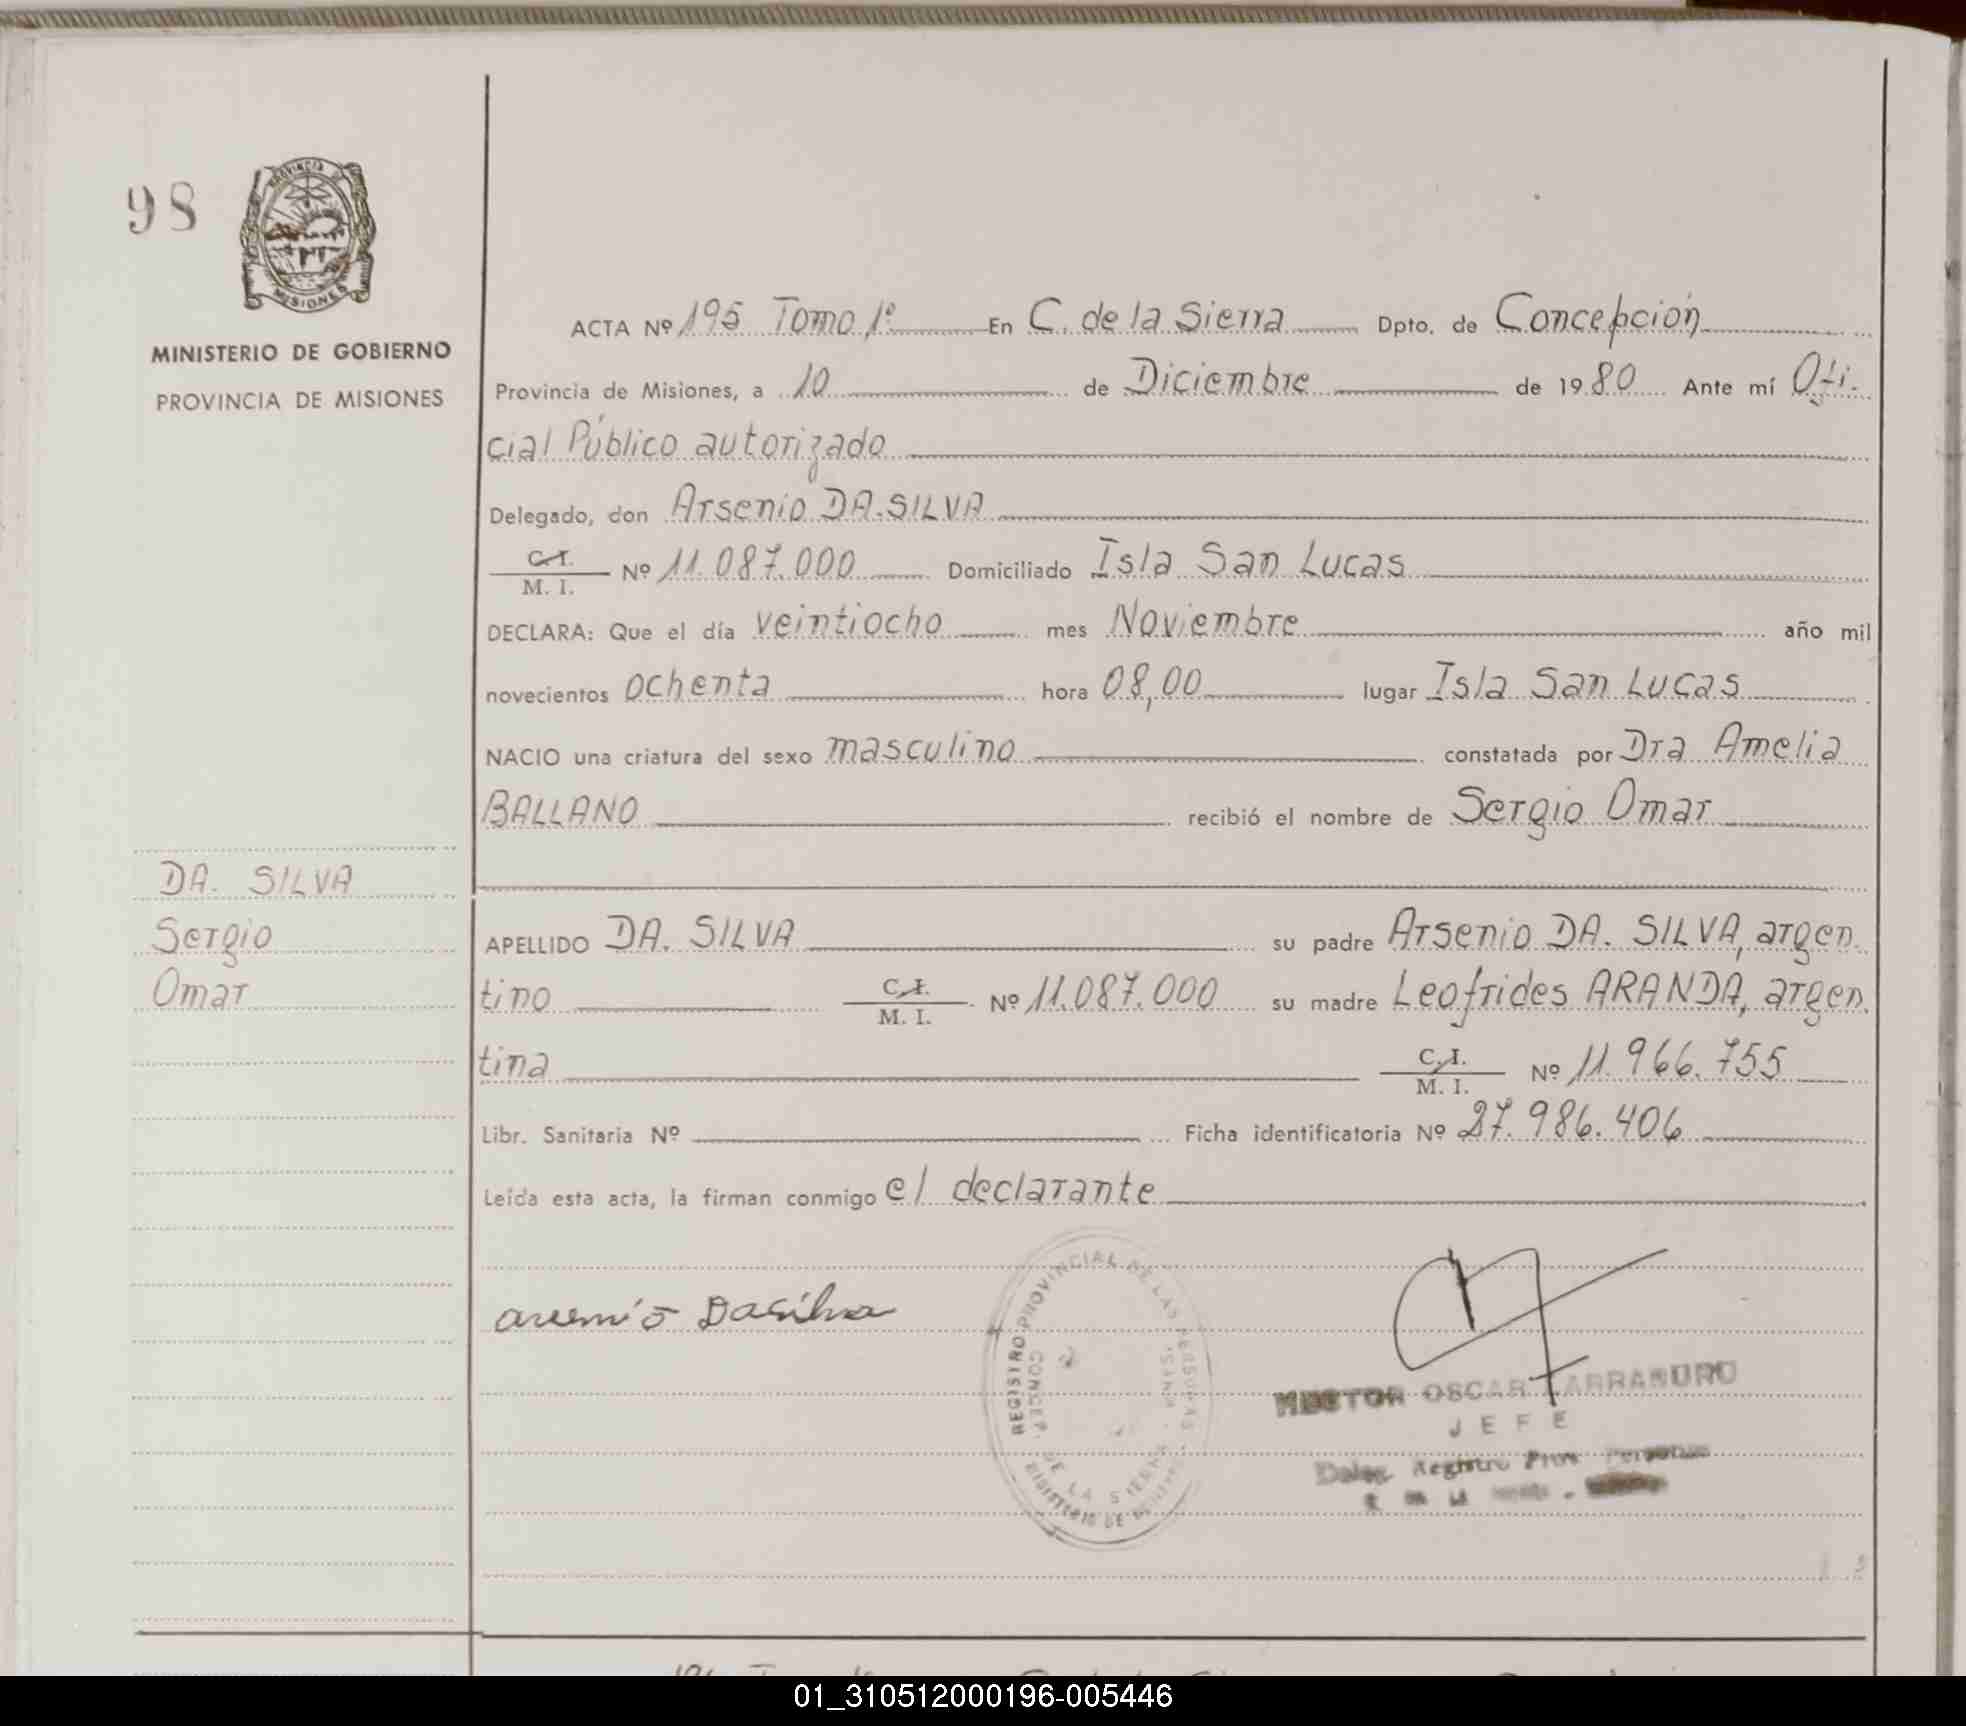 98
PROVINCIA DE
MISIONES
MINISTERIO DE GOBIERNO
PROVINCIA DE MISIONES
ACTA Nº 195 Tomo 1º En C. de la Sierra Dpto. de Concepción
Provincia de Misiones, a 10 de Diciembre de 1980 Ante mí Ofi-
cial Público autorizado
Delegado, don Arsenio DA. SILVA
C.I. / M. I. Nº 11.087.000 Domiciliado Isla San Lucas
DECLARA: Que el día veintiocho mes Noviembre año mil
novecientos ochenta hora 08,00 lugar Isla San Lucas
NACIO una criatura del sexo masculino constatada por Dra Amelia
BALLANO recibió el nombre de Sergio Omar
DA. SILVA
Sergio
Omar
APELLIDO DA. SILVA su padre Arsenio DA. SILVA, argen.
tino C.I. / M. I. Nº 11.087.000 su madre Leofrides ARANDA, argen.
tina C.I. / M. I. Nº 11.966.755
Libr. Sanitaria Nº Ficha identificatoria Nº 27.986.406
Leída esta acta, la firman conmigo el declarante
arsenio Dasilva
REGISTRO PROVINCIAL DE LAS PERSONAS
CONCEP. DE LA SIERRA
OSCAR
JEFE
Deleg. Registro Prov. Personas
01_310512000196-005446